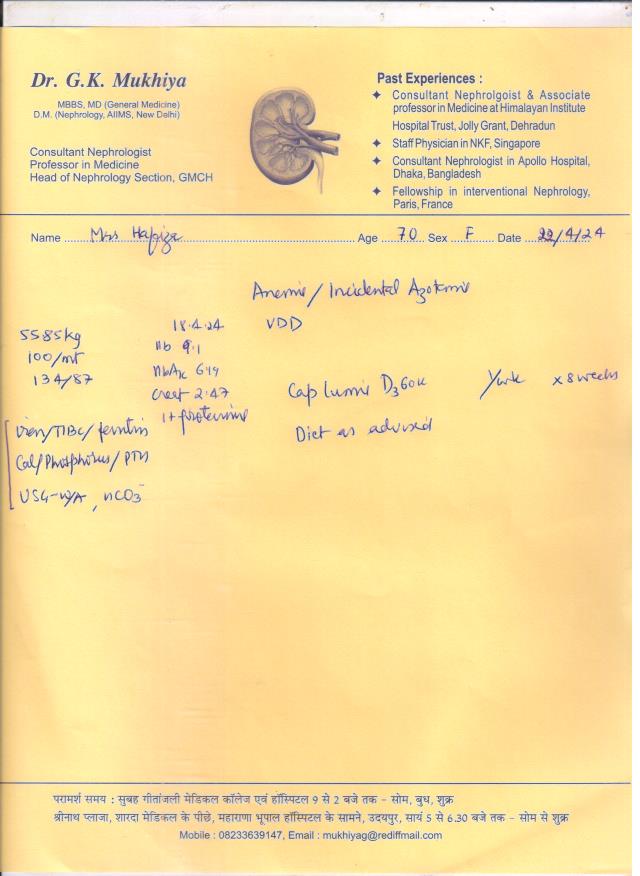 Dr. G.K. Mukhiya
MBBS, MD (General Medicine)
D.M. (Nephrology, AIIMS, New Delhi)
Consultant Nephrologist
Professor in Medicine
Head of Nephrology Section, GMCH
Past Experiences :
✦ Consultant Nephrolgoist & Associate
professor in Medicine at Himalayan Institute
Hospital Trust, Jolly Grant, Dehradun
✦ Staff Physician in NKF, Singapore
✦ Consultant Nephrologist in Apollo Hospital,
Dhaka, Bangladesh
✦ Fellowship in interventional Nephrology,
Paris, France
Name Mrs Hafiza Age 70 Sex F Date 22/4/24
Anemia / Incidental Azotemia
VDD
55.85kg
100/mt
134/87
18.4.24
Hb 9.1
HbA1c 6.49
Creat 2.47
1+ proteinuria
Cap Lumia D3 60K /week x 8 weeks
Diet as advised
Iron/TIBC/ferritin
Cal/Phosphorus/PTH
USG-W/A, HCO3-
परामर्श समय : सुबह गीतांजली मेडिकल कॉलेज एवं हॉस्पिटल 9 से 2 बजे तक - सोम, बुध, शुक्र
श्रीनाथ प्लाजा, शारदा मेडिकल के पीछे, महाराणा भूपाल हॉस्पिटल के सामने, उदयपुर, सायं 5 से 6.30 बजे तक - सोम से शुक्र
Mobile : 08233639147, Email : mukhiyag@rediffmail.com